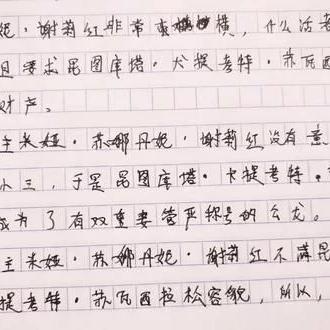 妮·谢莉红非常蛮横，什么活者
且要求昆图库塔·犬提考特·苏瓦西
财产。
主米娅·苏娜丹妮·谢莉红没有意
小三，于是昆图库塔·卡提考特·
成为了有双重妻管严称号的公龙。
主米娅·苏娜丹妮·谢莉红不满昆
提考特·苏瓦西拉松容貌，所以，